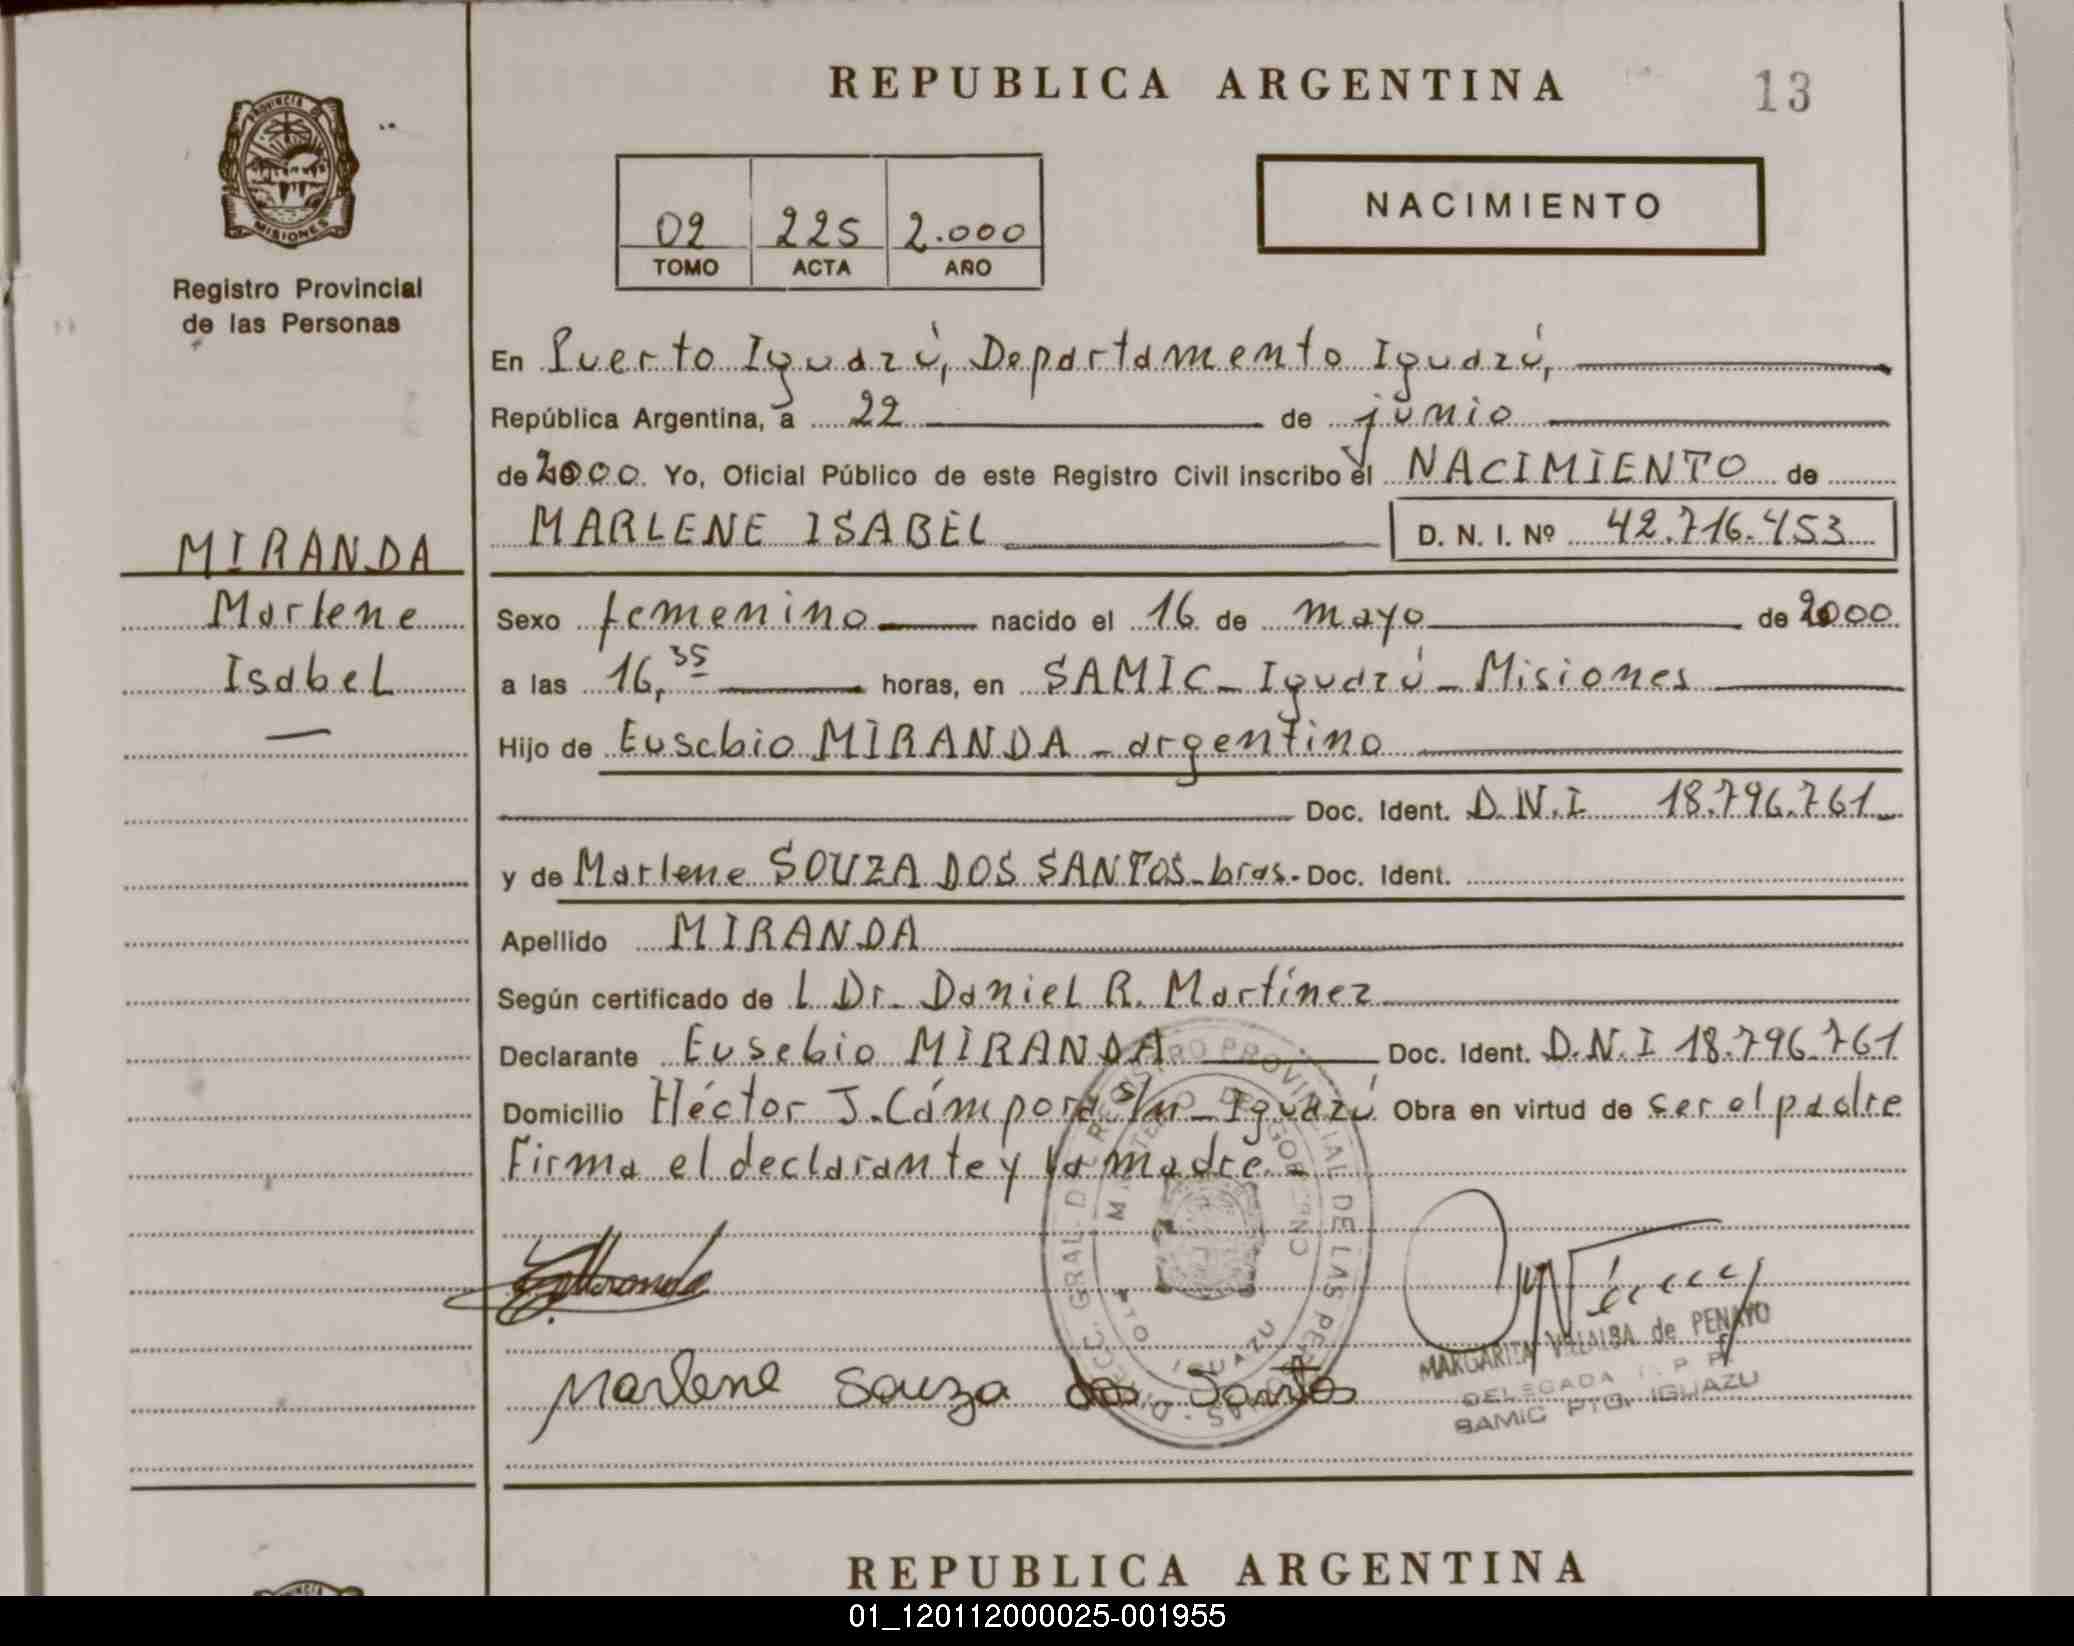 REPUBLICA ARGENTINA
13
PROVINCIA DE
MISIONES
Registro Provincial
de las Personas
02 225 2.000
TOMO ACTA AÑO
NACIMIENTO
En Puerto Iguazú, Departamento Iguazú,
República Argentina, a 22 de junio
de 2000. Yo, Oficial Público de este Registro Civil inscribo el NACIMIENTO de
MARLENE ISABEL D. N. I. Nº 42.716.453
MIRANDA
Marlene
Isabel
Sexo femenino nacido el 16 de mayo de 2000
a las 16,35 horas, en SAMIC - Iguazú - Misiones
Hijo de Eusebio MIRANDA - argentino
Doc. Ident. D.N.I 18.796.761
y de Marlene SOUZA DOS SANTOS - bras. Doc. Ident.
Apellido MIRANDA
Según certificado de l Dr. Daniel R. Martínez
Declarante Eusebio MIRANDA Doc. Ident. D.N.I 18.796.761
Domicilio Héctor J. Cámpora s/n - Iguazú Obra en virtud de ser el padre
Firma el declarante y la madre. -
REGISTRO PROVINCIAL DE LAS PERSONAS
MINISTERIO DE GOBIERNO
PTO IGUAZU
Marlene Souza dos Santos
MARGARITA VILLALBA de PENAYO
DELEGADA R. P. P.
SAMIC PTO. IGUAZU
REPUBLICA ARGENTINA
01_120112000025-001955